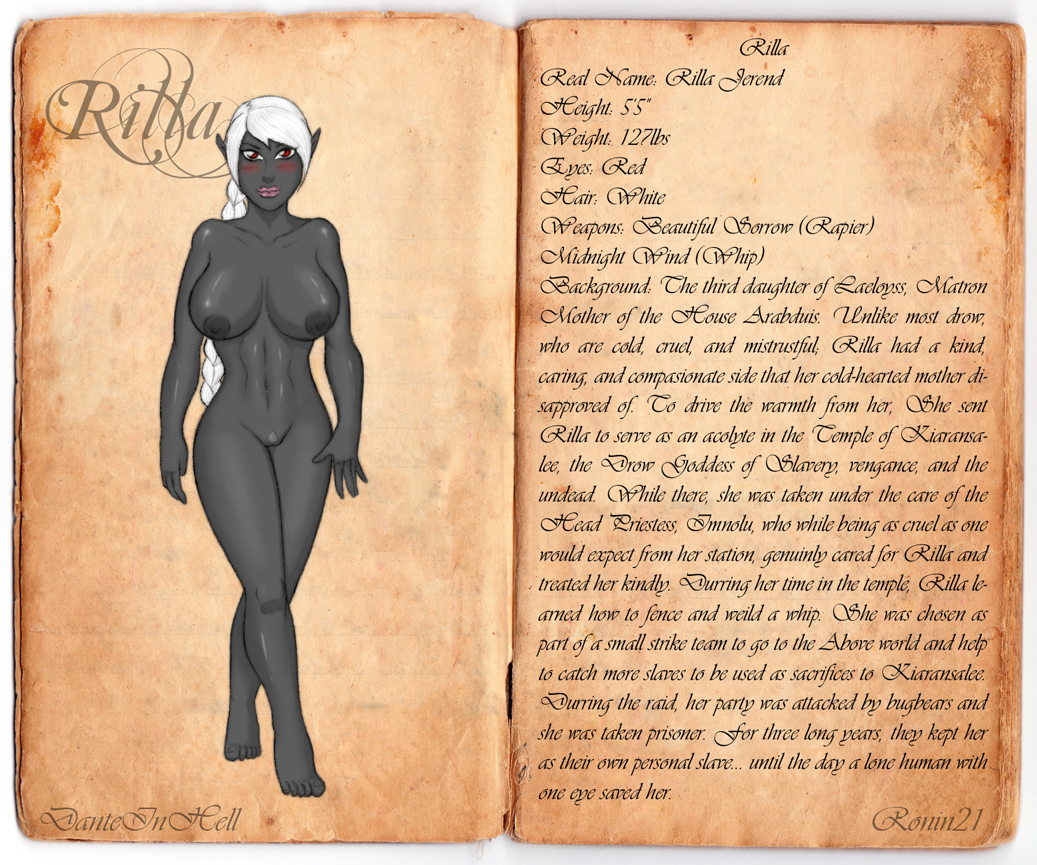 Rilla
DanteInHell
Rilla
Real Name: Rilla Jerend
Height: 5'5"
Weight: 127lbs
Eyes: Red
Hair: White
Weapons: Beautiful Sorrow (Rapier)
Midnight Wind (Whip)
Background: The third daughter of Laeloyss, Matron
Mother of the House Arabduis. Unlike most drow,
who are cold, cruel, and mistrustful; Rilla had a kind,
caring, and compasionate side that her cold-hearted mother di-
sapproved of. To drive the warmth from her, She sent
Rilla to serve as an acolyte in the Temple of Kiaransa-
lee, the Drow Goddess of Slavery, vengance, and the
undead. While there, she was taken under the care of the
Head Priestess, Imnolu, who while being as cruel as one
would expect from her station, genuinly cared for Rilla and
treated her kindly. Durring her time in the temple, Rilla le-
arned how to fence and weild a whip. She was chosen as
part of a small strike team to go to the Above world and help
to catch more slaves to be used as sacrifices to Kiaransalee.
Durring the raid, her party was attacked by bugbears and
she was taken prisoner. For three long years, they kept her
as their own personal slave... until the day a lone human with
one eye saved her.
Ronin21